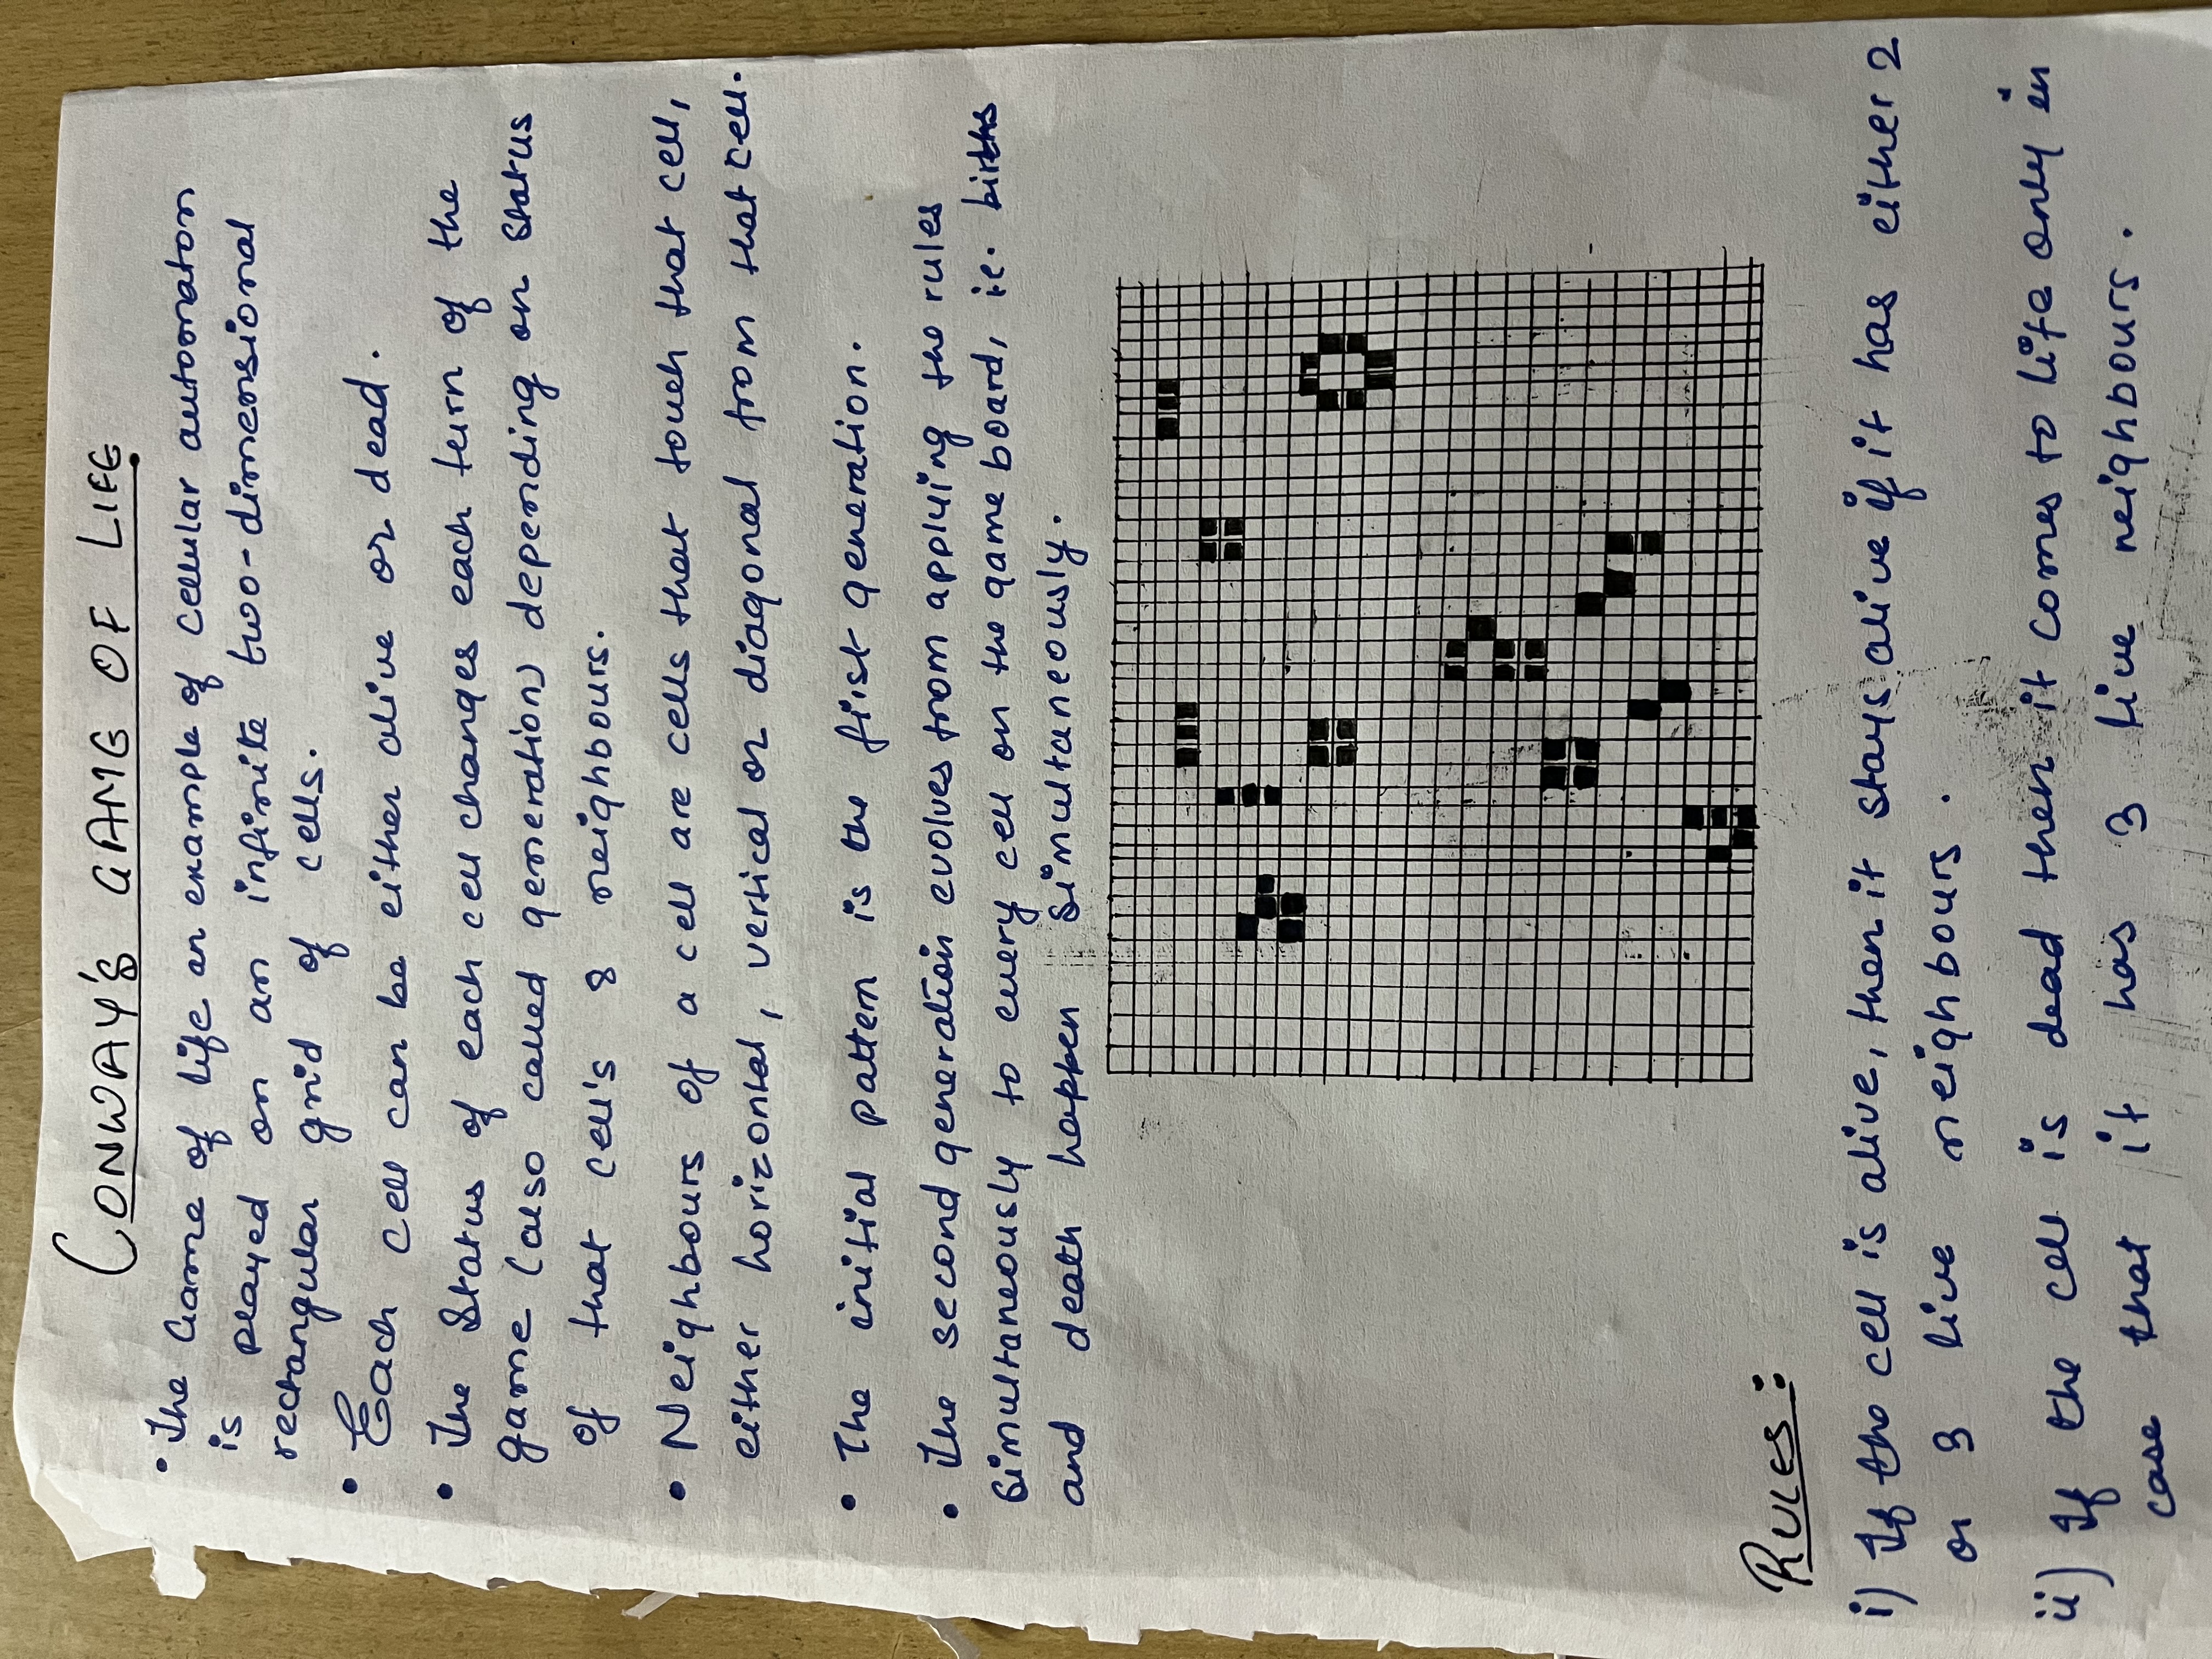 CONWAY'S GAME OF LIFE
• The Game of life an example of cellular automaton
is played on an infinite two-dimensional
rectangular grid of cells.
• Each cell can be either alive or dead.
• The Status of each cell changes each turn of the
game (also called generation) depending on status
of that cell's 8 neighbours.
• Neighbours of a cell are cells that touch that cell,
either horizontal, vertical or diagonal from that cell.
• The initial pattern is the first generation.
• The second generation evolves from applying the rules
simultaneously to every cell on the game board, i.e. births
and death happen simultaneously.
RULES:
i) If the cell is alive, then it stays alive if it has either 2
or 3 live neighbours.
ii) If the cell is dead then it comes to life only in
case that it has 3 live neighbours.